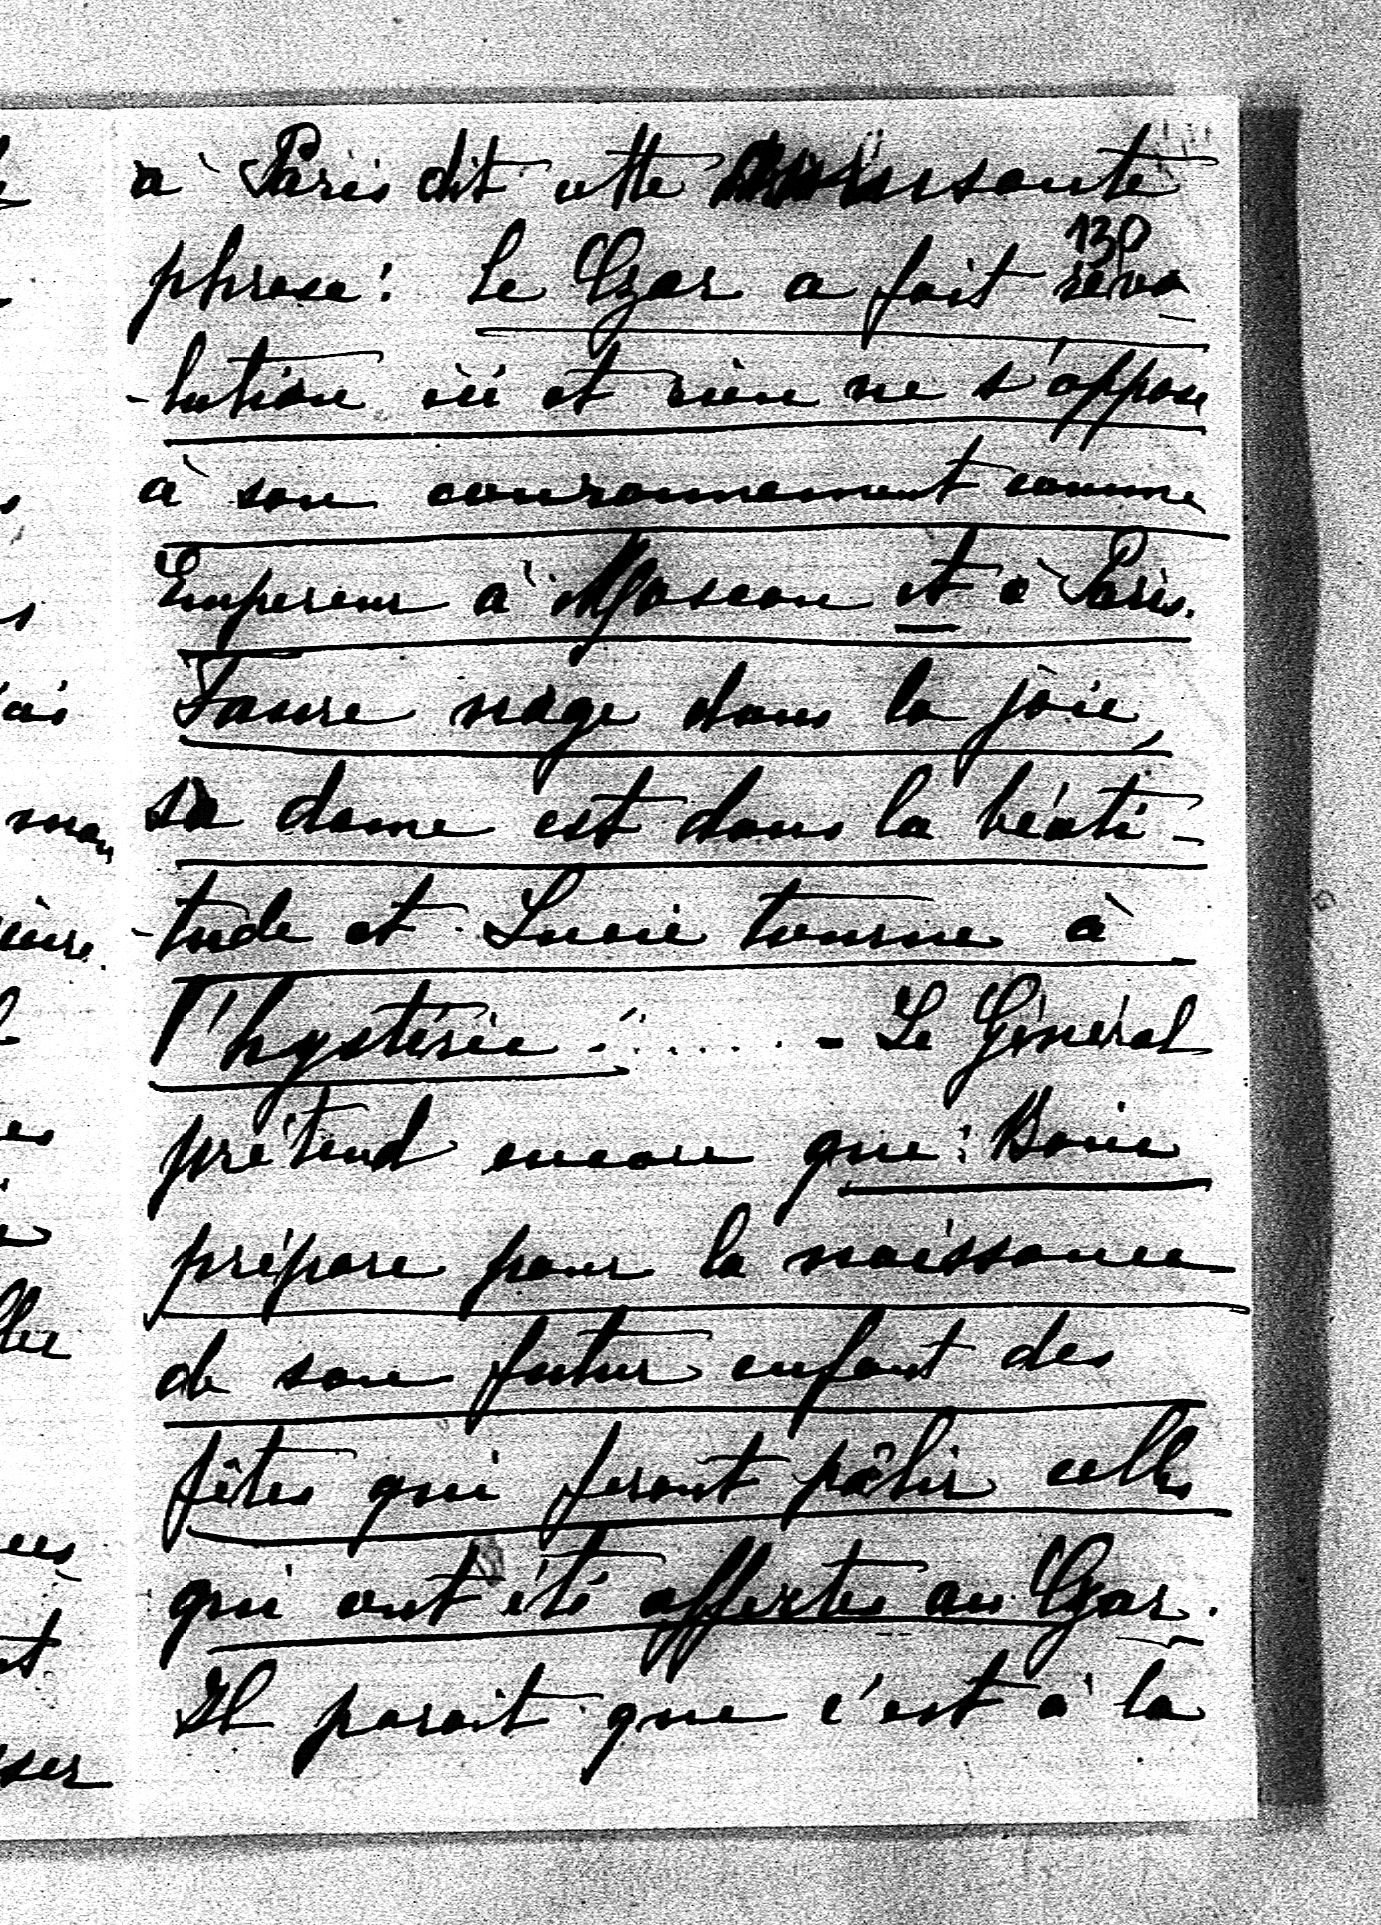 à Paris dit cette amusante
130
phrase: Le Czar a fait révo
-lution ici et rien ne s'oppose
à son couronnement comme
Empereur à Moscou et à Paris.
Faure nage dans la joie,
sa dame est dans la béati-
-tude et Lucie tourne à
l'hystérie ....... - Le Général
prétend encore que: Boni
prépare pour la naissance
de son futur enfant des
fêtes qui feront pâlir celles
qui ont été offertes au Czar.
Il parait que c'est à la